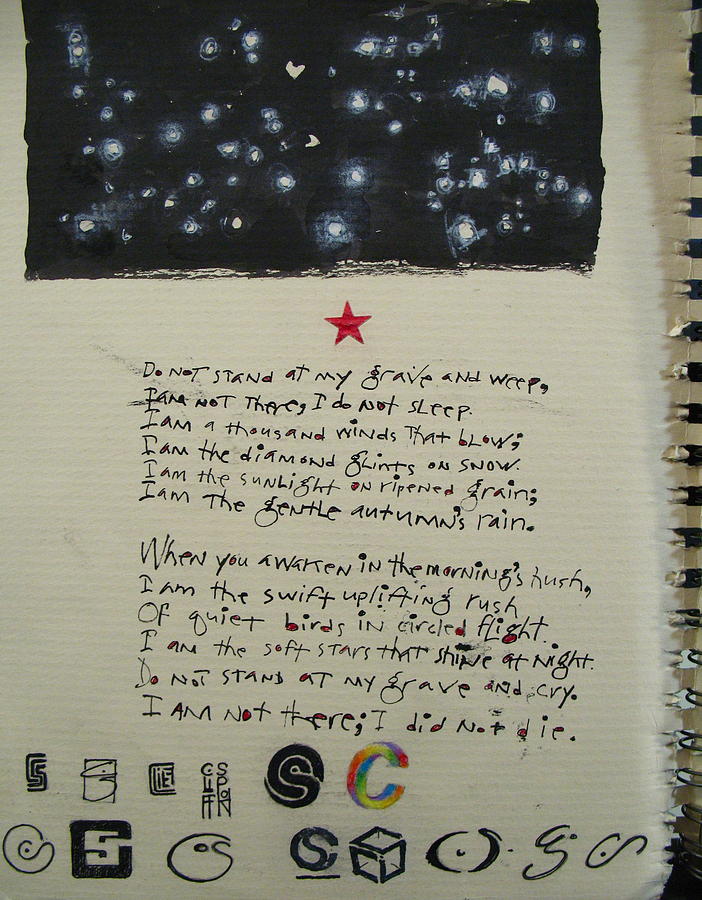 Do not stand at my grave and weep,
I am not there; I do not sleep.
I am a thousand winds that blow;
I am the diamond glints on snow.
I am the sunlight on ripened grain;
I am the gentle autumn's rain.
When you awaken in the morning's hush,
I am the swift uplifting rush
Of quiet birds in circled flight.
I am the soft stars that shine at night.
Do not stand at my grave and cry.
I am not there; I did not die.
S C